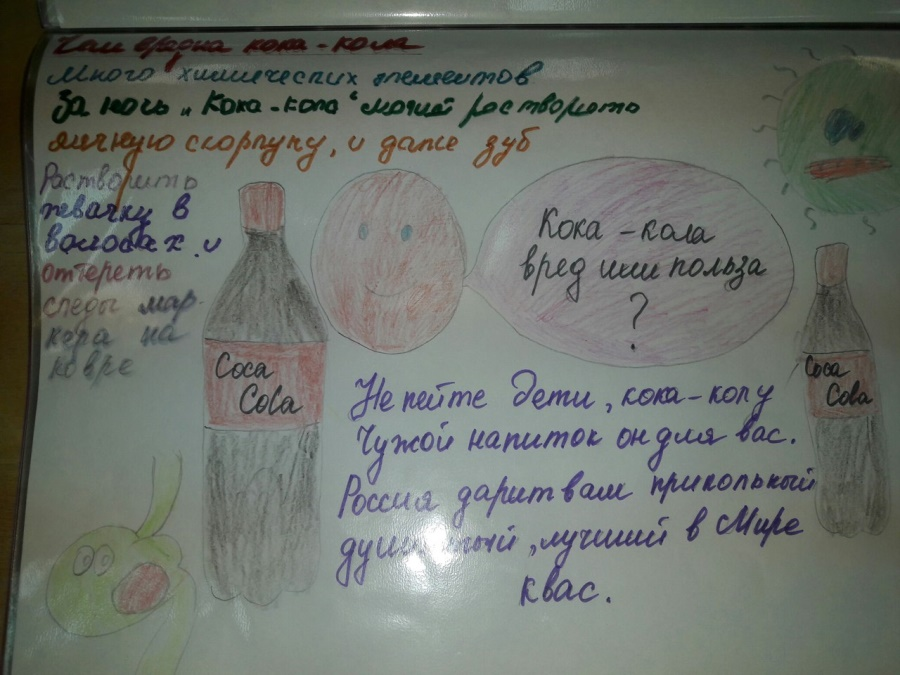 Чем вредна кока-кола
Много химических элементов
За ночь „Кока-кола“ может растворить
яичную скорлупу, и даже зуб
Растворить
жвачку в
волосах и
оттереть
следы мар-
кера на
ковре
Кока-кола
вред или польза
?
Coca
Cola
Coca
Cola
Не пейте дети, кока-колу
Чужой напиток он для вас.
Россия дарит вам прикольный
, лучший в Мире
квас.